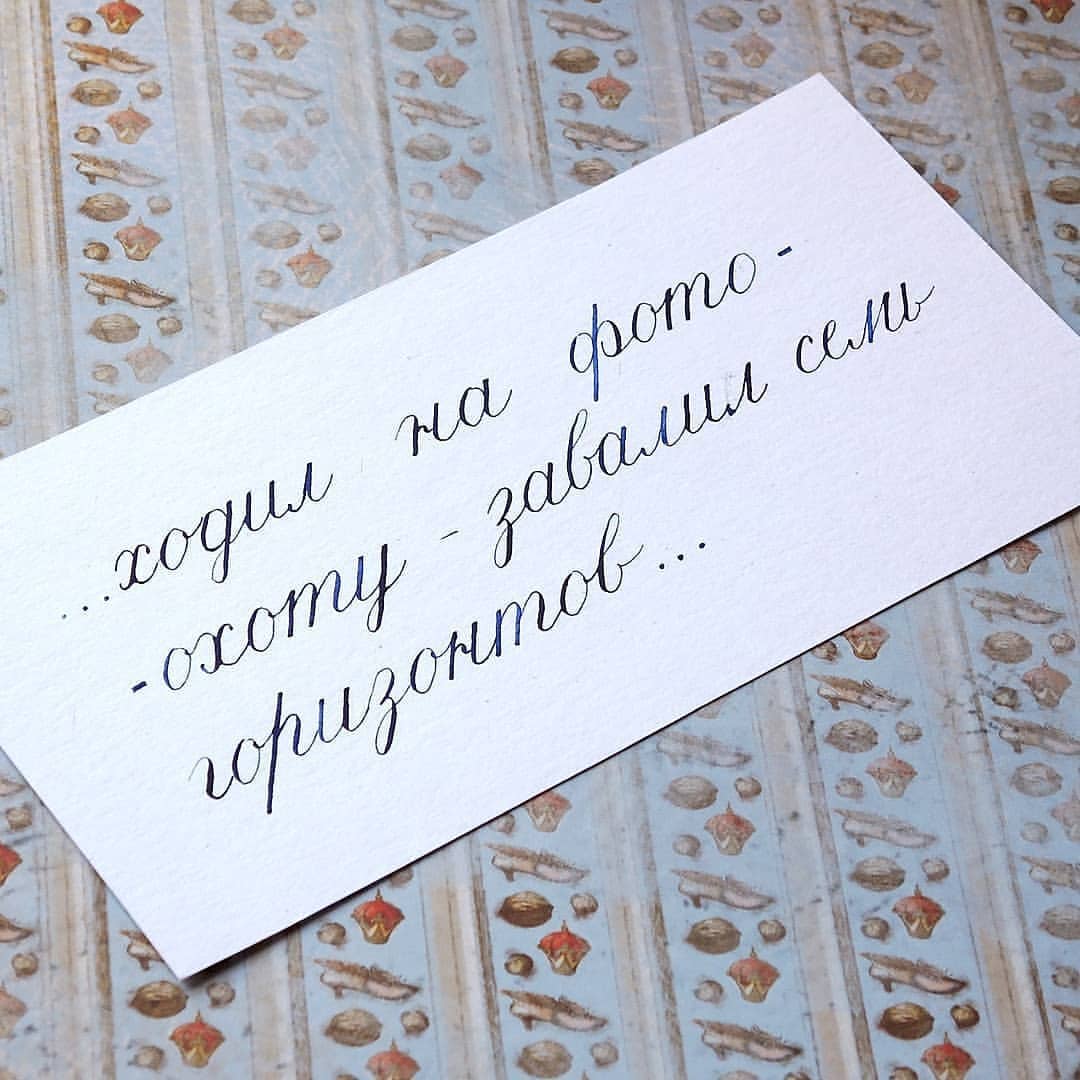 ...ходил на фото-
-охоту - завалил семь
горизонтов...